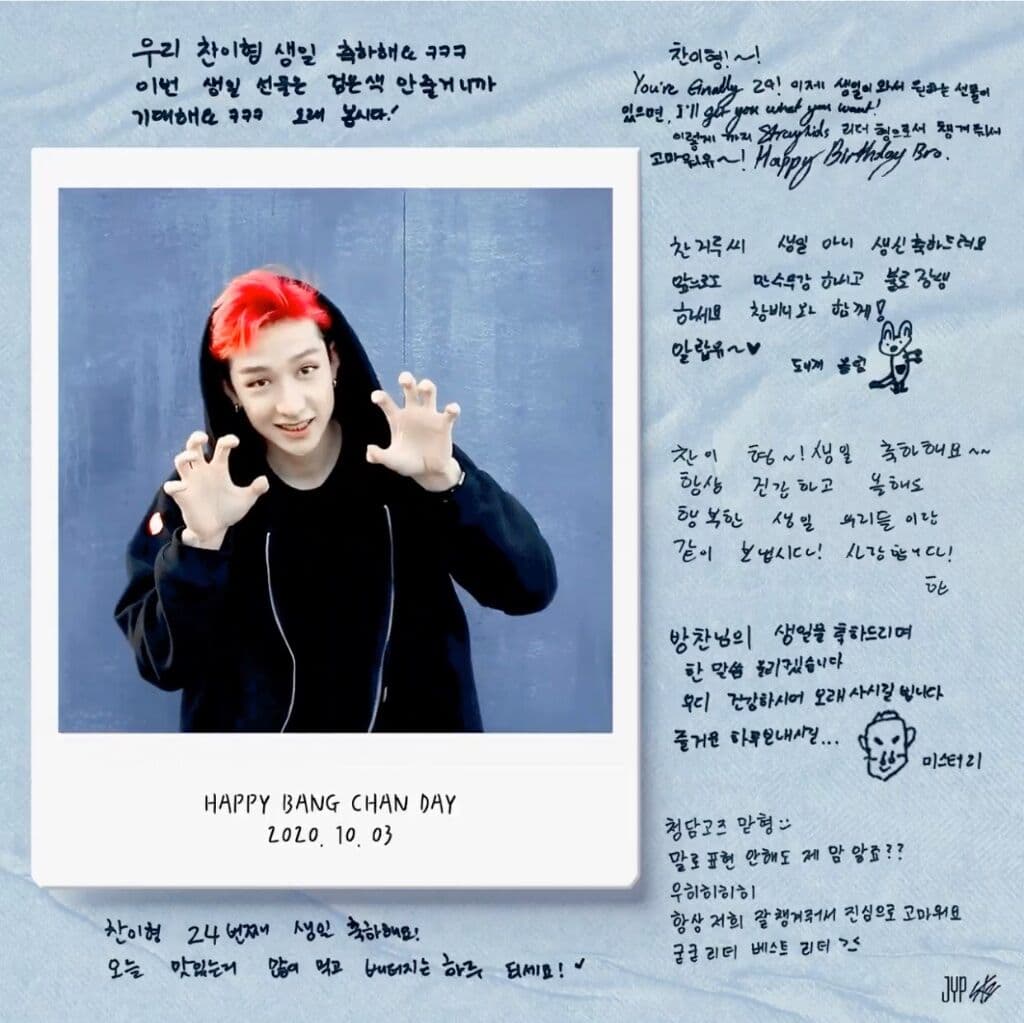 우리 찬이형 생일 축하해요 ㅋㅋㅋ
이번 생일 선물은 검은색 안줄거니까
기대해요 ㅋㅋㅋ 오래 봅시다!
찬이형!~!
You're finally 24! 이제 생일이 와서 원하는 선물이
있으면, I'll get you what you want!
이렇게 까지 Straykids 리더 형으로서 챙겨줘서
고마워유~! Happy Birthday Bro.
찬거루씨 생일 아니 생신축하드려요
앞으로도 만수무강 하시고 불로장생
하세요 창빈이와 함께!
알랍유~♥
돼끼 올림
찬이 형~! 생일 축하해요~~
항상 건강하고 올해도
행복한 생일 우리들이랑
같이 보냅시다! 사랑합니다!
한
방찬님의 생일을 축하드리며
한 말씀 올리겠습니다
부디 건강하시어 오래사시길 빕니다
즐거운 하루보내시길...
미스터리
청담고즈 맏형
말로 표현 안해도 제 맘 알죠??
우히히히히
항상 저희 잘 챙겨줘서 진심으로 고마워요
굳굳리더 베스트 리더 ^^
HAPPY BANG CHAN DAY
2020. 10. 03
찬이형 24번째 생일 축하해요!
오늘 맛있는거 많이 먹고 배터지는 하루 되세요!
JYP